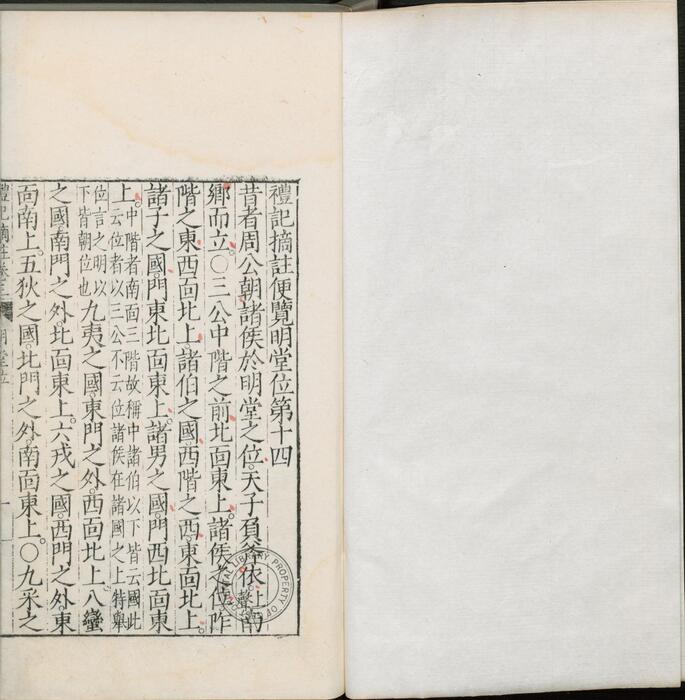 禮記摘註便覽明堂位第十四
昔者周公朝諸侯於明堂之位。天子負斧依。
鄉而立。〇三公中階之前北面東上。諸侯之位阼
階之東西面北上。諸伯之國西階之西東面北上。
諸子之國門東北面東上。諸男之國門西北面東
上。中階者南面三階故稱中諸伯以下皆云國此
云位者以三公不云位諸侯在諸國之上特舉
位言之明以
下皆朝位也
九夷之國東門之外西面北上八蠻
之國南門之外北面東上。六戎之國西門之外東
面南上。五狄之國北門之外南面東上。〇九采之
明堂位
一
PROPERTY OF
LIBRARY